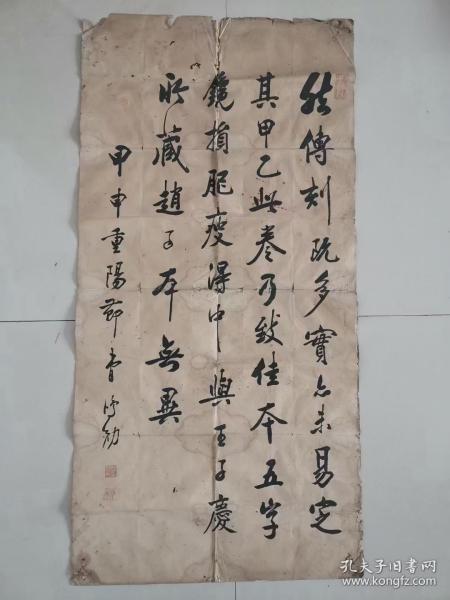 然傳刻既多實亦未易定
其甲乙此卷乃致佳本五字
鑱損肥瘦得中與王子慶
所藏趙子本無異
甲申重陽節曹鴻勛
孔夫子旧书网
www.kongfz.com